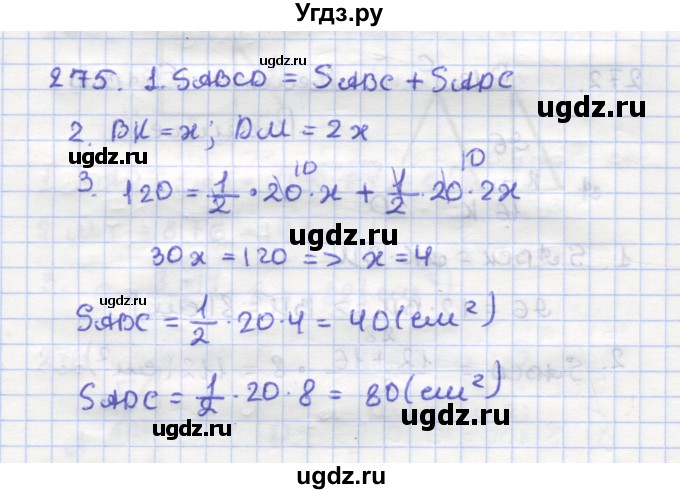 Угдз.ру
ugdz.ru
275. 1. SABCD = SABC + SADC
ugdz.ru
2. BK = x; DM = 2x
ugdz.ru
10 10
3. 120 = 1/2 · 20 · x + 1/2 · 20 · 2x
ugdz.ru
30x = 120 => x = 4
ugdz.ru
ugdz.ru
SABC = 1/2 · 20 · 4 = 40 (см²)
ugdz.ru
ugdz.ru
SADC = 1/2 · 20 · 8 = 80 (см²)
ugdz.ru
ugdz.ru
ugdz.ru